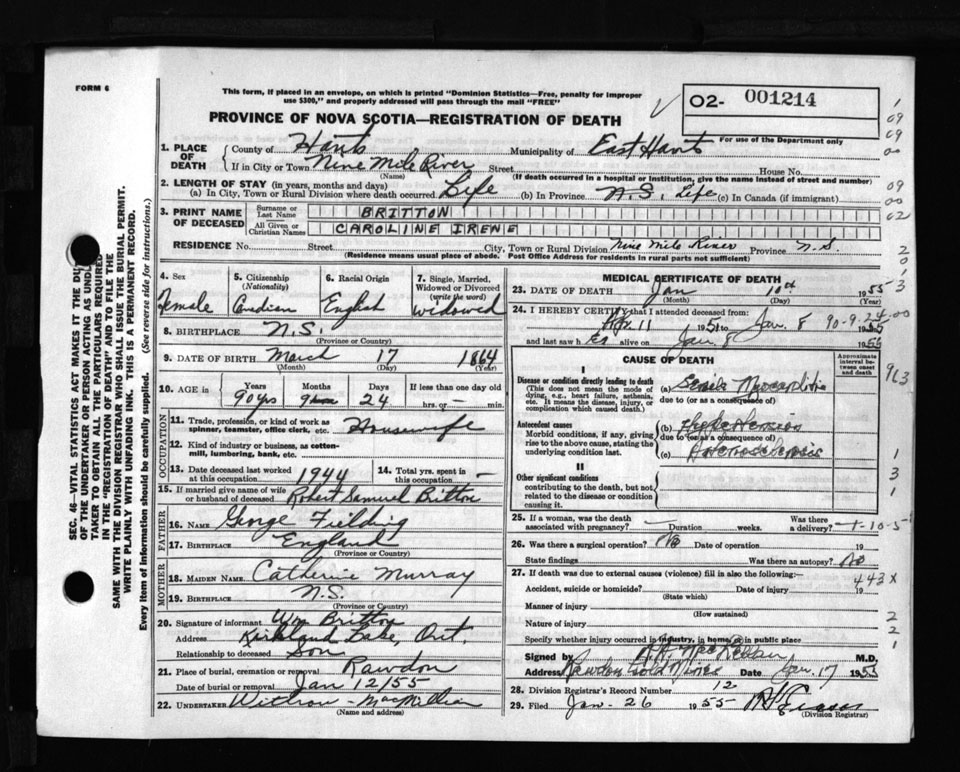 FORM 6
This form, if placed in an envelope, on which is printed "Dominion Statistics—Free, penalty for improper
use $300," and properly addressed will pass through the mail "FREE"
O2- 001214
For use of the Department only
PROVINCE OF NOVA SCOTIA—REGISTRATION OF DEATH
1. PLACE OF DEATH County of Hants Municipality of East Hants
If in City or Town Nine Mile River Street House No.
(Name) (If death occurred in a hospital or Institution, give the name instead of street and number)
2. LENGTH OF STAY (in years, months and days)
(a) In City, Town or Rural Division where death occurred Life (b) In Province N.S. Life (c) In Canada (if immigrant)
3. PRINT NAME OF DECEASED Surname or Last Name BRITTON
All Given or Christian Names CAROLINE IRENE
RESIDENCE No. Street City, Town or Rural Division Nine Mile River Province N.S.
(Residence means usual place of abode. Post Office Address for residents in rural parts not sufficient)
4. Sex Female
5. Citizenship (Nationality) Canadian
6. Racial Origin English
7. Single, Married, Widowed or Divorced (write the word) Widowed
8. BIRTHPLACE N.S.
(Province or Country)
9. DATE OF BIRTH March 17 1864
(Month) (Day) (Year)
10. AGE in Years Months Days If less than one day old
90 yrs 9 24 hrs. or — min.
OCCUPATION
11. Trade, profession, or kind of work as spinner, teamster, office clerk, etc. Housewife
12. Kind of industry or business, as cotton-mill, lumbering, bank, etc.
13. Date deceased last worked at this occupation 1944
14. Total yrs. spent in this occupation —
15. If married give name of wife or husband of deceased Robert Samuel Britton
FATHER
16. NAME George Fielding
17. BIRTHPLACE England
(Province or Country)
MOTHER
18. MAIDEN NAME Catherine Murray
19. BIRTHPLACE N.S.
(Province or Country)
20. Signature of informant Wm Britton
Address Kirkland Lake, Ont.
Relationship to deceased Son
21. Place of burial, cremation or removal Rawdon
Date of burial or removal Jan 12/55
22. UNDERTAKER Withrow - MacMillan
(Name and address)
MEDICAL CERTIFICATE OF DEATH
23. DATE OF DEATH Jan 10th 1955
(Month) (Day) (Year)
24. I HEREBY CERTIFY that I attended deceased from:
11 1951 to Jan. 8 1955
and last saw h er alive on Jan 8 1955
90-9-24
CAUSE OF DEATH
Approximate interval between onset and death
I
Disease or condition directly leading to death
(This does not mean the mode of dying, e.g., heart failure, asthenia, etc. It means the disease, injury, or complication which caused death.)
(a) Senile Myocarditis
due to (or as a consequence of)
Antecedent causes
Morbid conditions, if any, giving rise to the above cause, stating the underlying condition last.
(b) Hypertension
due to (or as a consequence of)
(c) Arteriosclerosis
II
Other significant conditions
contributing to the death, but not related to the disease or condition causing it.
25. If a woman, was the death associated with pregnancy? — Duration weeks. Was there a delivery?
26. Was there a surgical operation? No Date of operation 19
State findings Was there an autopsy? No
27. If death was due to external causes (violence) fill in also the following:-
Accident, suicide or homicide? Date of injury 19
(State which)
443 X
Manner of injury
(How sustained)
Nature of injury
Specify whether injury occurred in industry, in home, or in public place
Signed by M.D.
Address Rawdon Gold Mines Date Jan. 17 1955
28. Division Registrar's Record Number 12
29. Filed Jan- 26 1955
(Division Registrar)
SEC. 46—VITAL STATISTICS ACT MAKES IT THE DUTY
OF THE UNDERTAKER OR PERSON ACTING AS UNDERTAKER
TO OBTAIN ALL THE PARTICULARS REQUIRED
IN THE "REGISTRATION OF DEATH" AND TO FILE THE
SAME WITH THE DIVISION REGISTRAR WHO SHALL ISSUE THE BURIAL PERMIT.
WRITE PLAINLY WITH UNFADING INK. THIS IS A PERMANENT RECORD.
Every item of information should be carefully supplied. (See reverse side for instructions.)